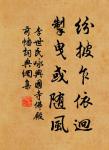 紛披乍依迴
掣曳或随風
李世民詠興國寺佛殿
前幡詞典網集